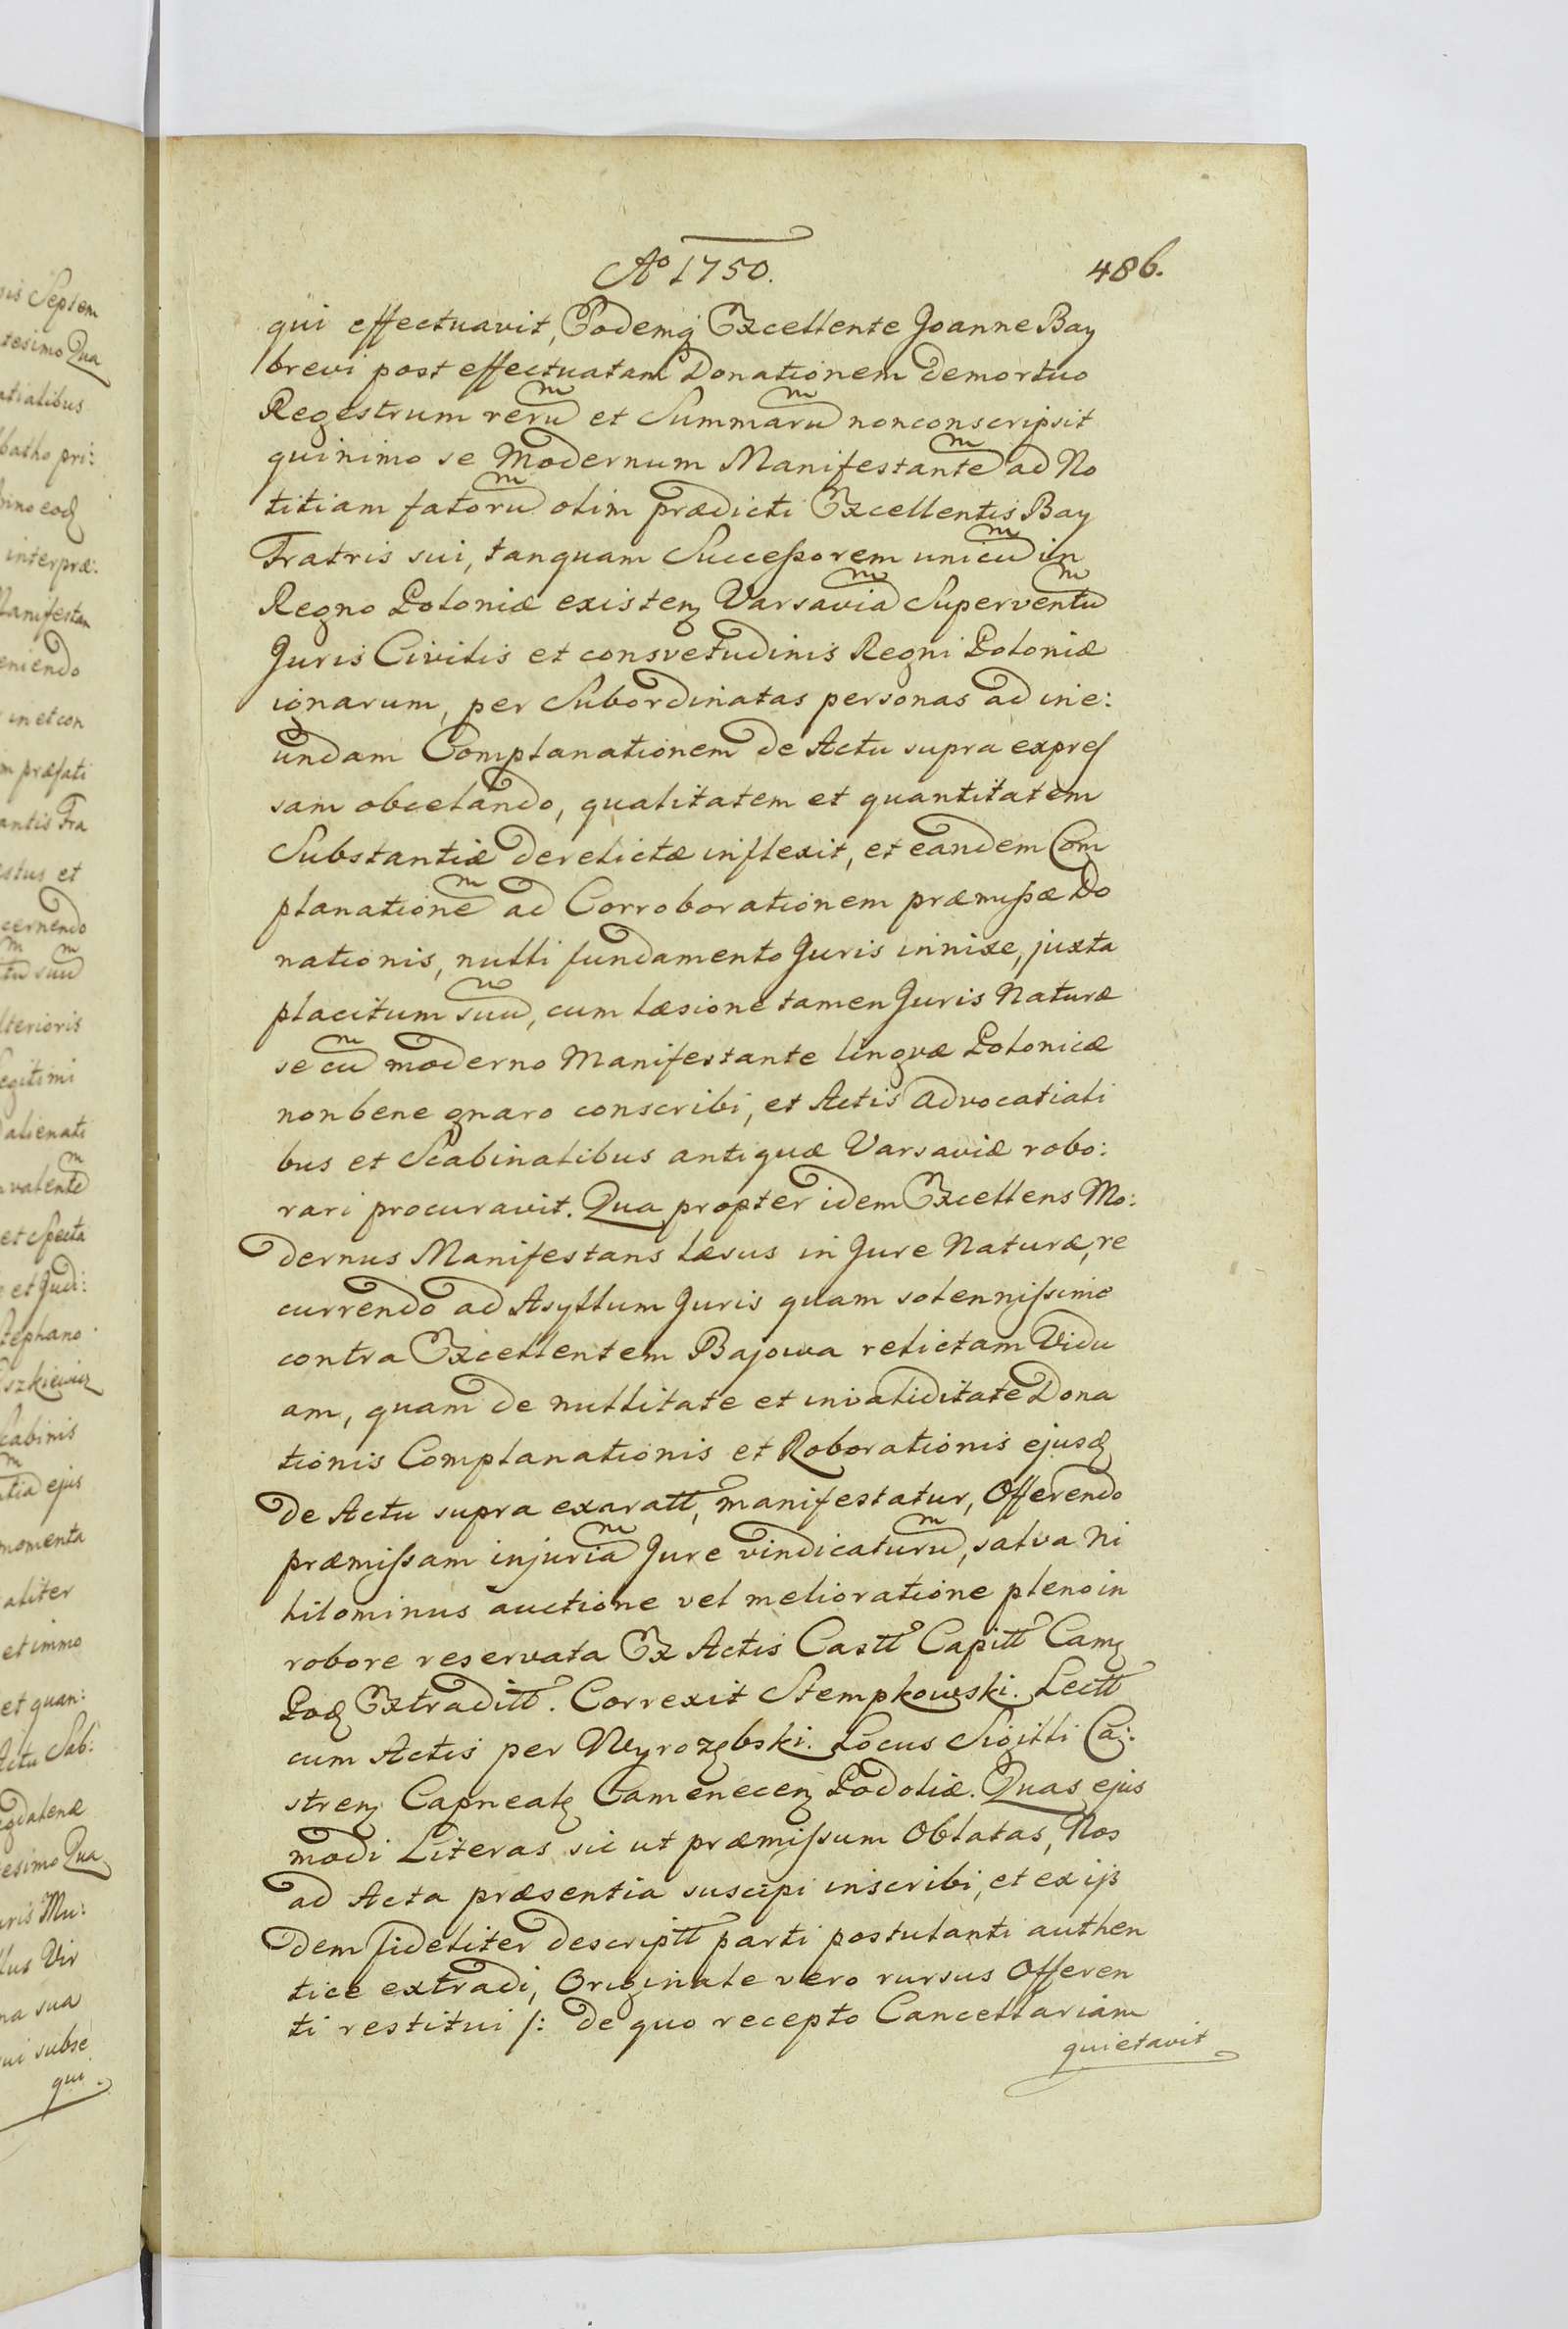 Ao 1750.
486.
qui effectuavit, Eodemq Excellente Joanne Bay
brevi post effectuatam Donationem demortuo
Regestrum rerum et Summarum nonconscripsit
quinimo se Modernum Manifestantem ad No
titiam fatorum olim prædicti Excellentis Bay
Fratris sui, tanquam Successorem unicum in
Regno Poloniæ existen Varsaviam Superventum
Juris Civilis et consvetudinis Regni Poloniæ
ignarum, per Subordinatas personas ad ine:
undam Complanationem de Actu supra expres
sam obcelando, qualitatem et quantitatem
Substantiæ derelictæ inflexit, et eandem Com
planationem ad Corroborationem præmissæ Do
nationis, nulli fundamento Juris innixe, juxta
placitum suum, cum læsione tamen Juris Naturæ
se cum moderno Manifestante lingvæ Polonicæ
non bene gnaro conscribi, et Actis Advocatiali
bus et Scabinalibus antiquæ Varsaviæ robo:
rari procuravit. Qua propter idem Excellens Mo:
dernus Manifestans læsus in Jure Naturæ, re
currendo ad Asyllum Juris quam solennissime
contra Excellentem Bajowa relictam Vidu
am, quam de nullitate et invaliditate Dona
tionis Complanationis et Roborationis ejusd
de Actu supra exaratt, manifestatur, Offerendo
præmissam injuriam Jure vindicaturum, salva Ni
hilominus auctione vel melioratione pleno in
robore reservata Ex Actis Castt Capitt Cam
Pod Extraditt. Correxit Stempkowski. Lectt
cum Actis per Wyrozębski. Locus Sigilli Ca:
stren Capneal Camenecen Podoliæ. Quas ejus
modi Literas sic ut præmissum Oblatas, Nos
ad Acta præsentia suscipi inscribi, et ex ijs
dem fideliter descriptt parti postulanti authen
tice extradi, Originale vero rursus Offeren
ti restitui /: de quo recepto Cancellariam
quietavit